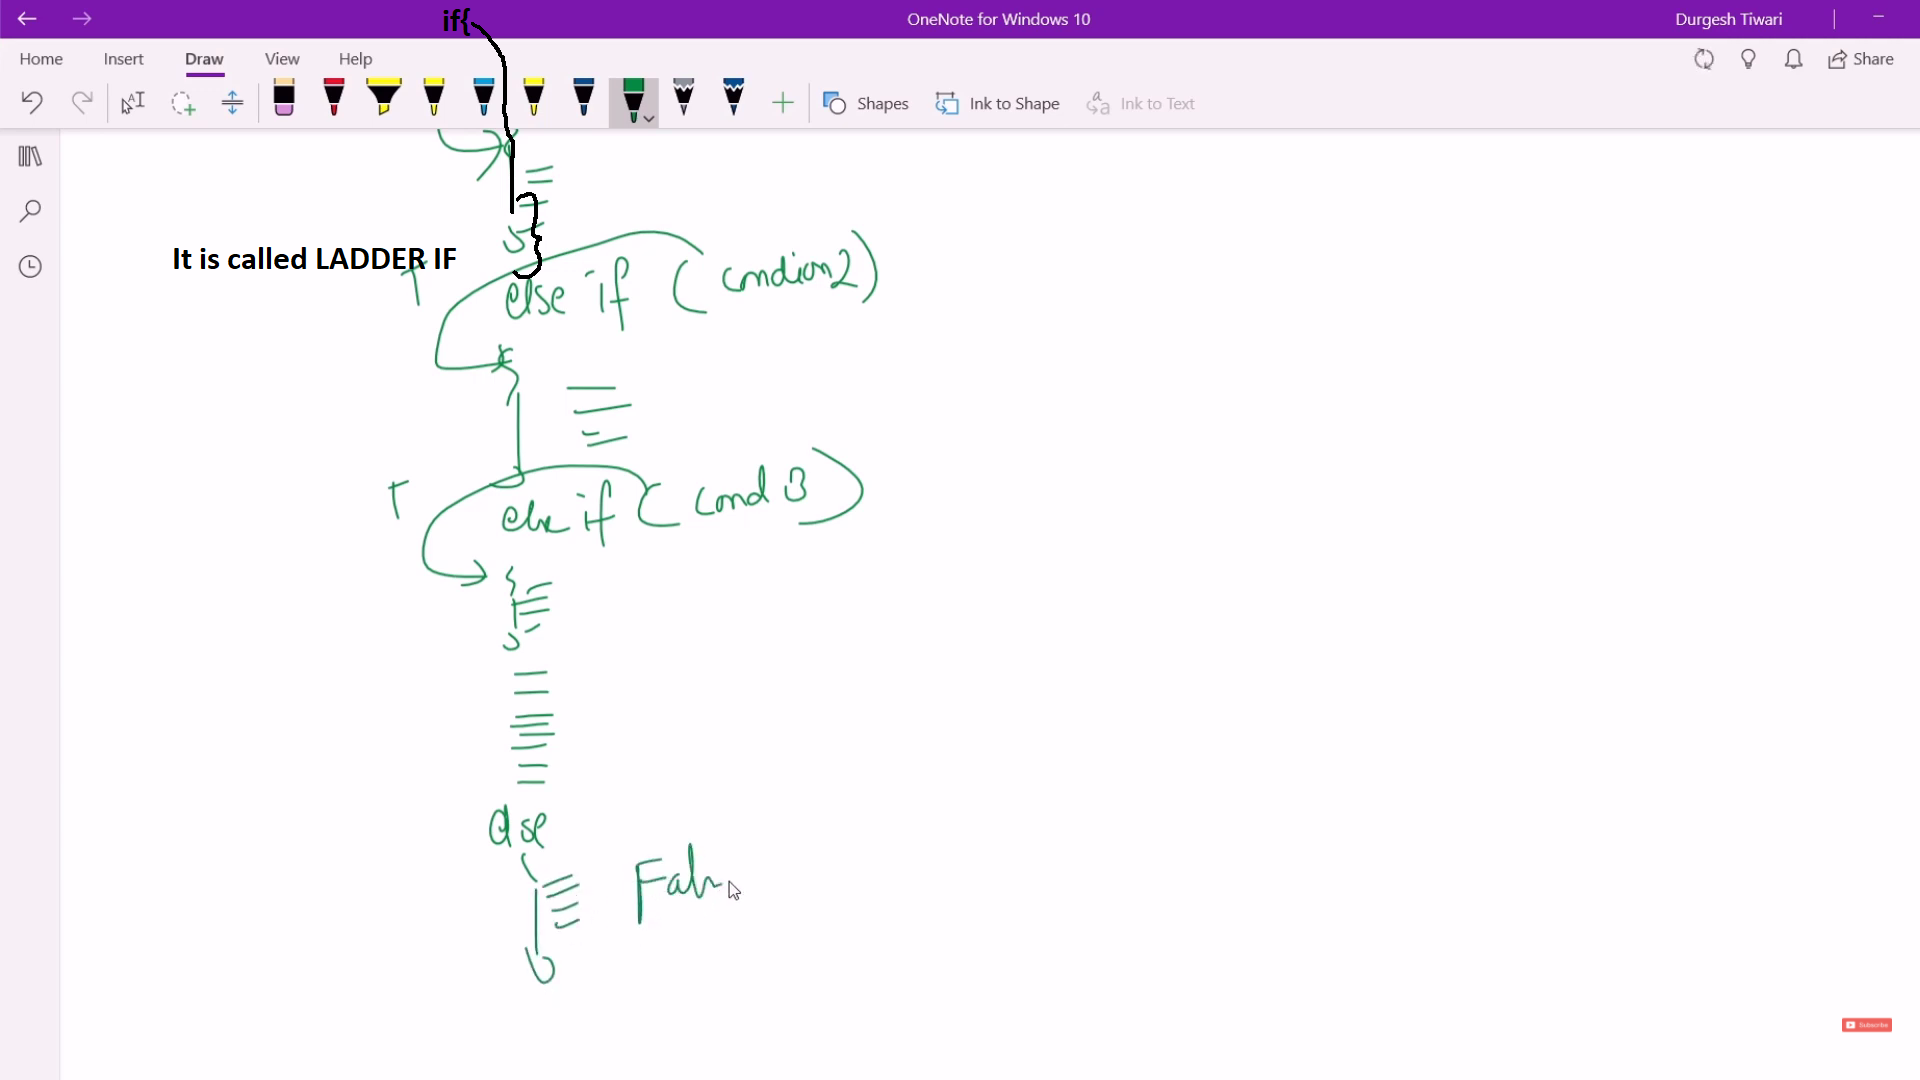 if{
OneNote for Windows 10
Durgesh Tiwari
Home Insert Draw View Help
Share
Shapes
Ink to Shape
Ink to Text
It is called LADDER IF
T
else if (condion2)
T
else if (cond 3)
else
Subscribe